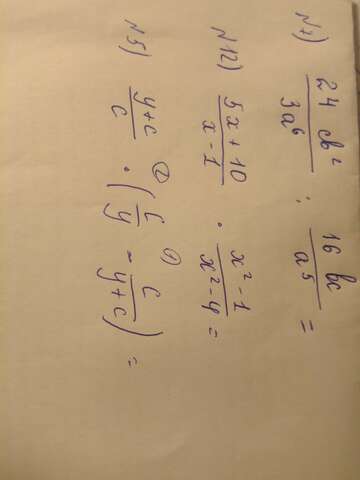 N 7) 24 cb² / 3a⁶ : 16 bc / a⁵ =
N 12) 5x + 10 / x - 1 · x² - 1 / x² - 4 =
N 5) y + c / c ·② ( c / y -① c / y + c ) =